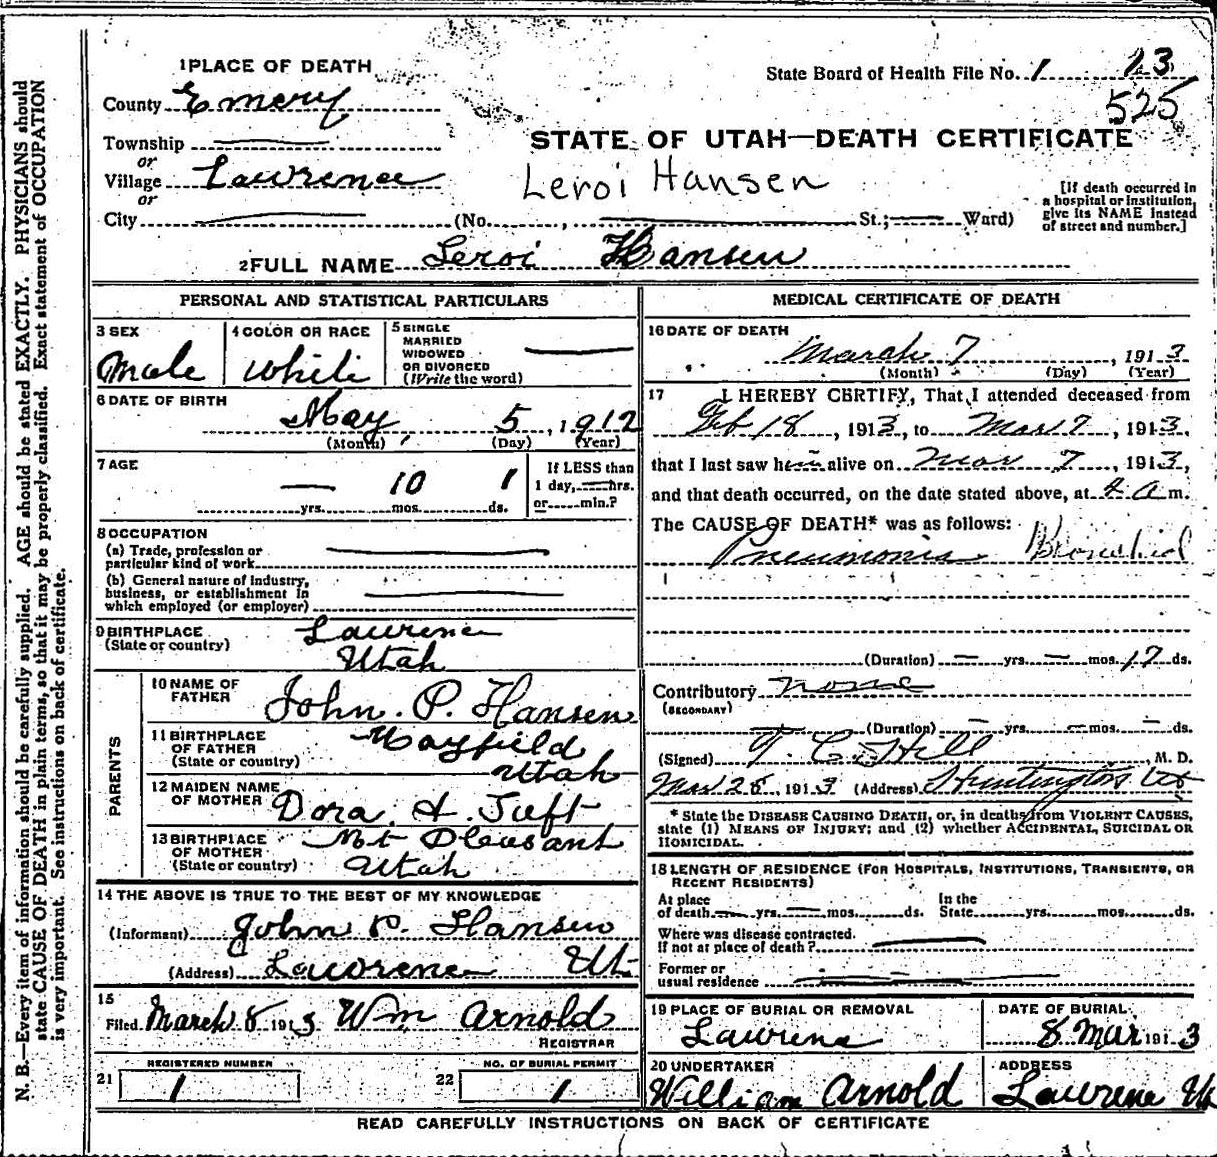 1 PLACE OF DEATH
State Board of Health File No. 1 13
County Emery
525
Township
STATE OF UTAH—DEATH CERTIFICATE
or
Village Lawrence
Leroi Hansen
or
City (No. , St.; Ward)
[If death occurred in
a hospital or institution,
give its NAME instead
of street and number.]
2 FULL NAME Leroi Hansen
PERSONAL AND STATISTICAL PARTICULARS
3 SEX
Male
4 COLOR OR RACE
White
5 SINGLE
MARRIED
WIDOWED
OR DIVORCED
(Write the word)
6 DATE OF BIRTH
May 5, 1912
(Month) (Day) (Year)
7 AGE
10 1
yrs. mos. ds.
If LESS than
1 day, hrs.
or min.?
8 OCCUPATION
(a) Trade, profession or
particular kind of work
(b) General nature of industry,
business, or establishment in
which employed (or employer)
9 BIRTHPLACE
(State or country)
Lawrence
Utah
PARENTS
10 NAME OF
FATHER
John. P. Hansen
11 BIRTHPLACE
OF FATHER
(State or country)
Mayfield
Utah
12 MAIDEN NAME
OF MOTHER
Dora A. Tuft
13 BIRTHPLACE
OF MOTHER
(State or country)
Mt Pleasant
Utah
14 THE ABOVE IS TRUE TO THE BEST OF MY KNOWLEDGE
(Informant) John P. Hansen
(Address) Lawrence Ut
15
Filed March 8 1913 Wm Arnold
REGISTRAR
REGISTERED NUMBER
21 1
NO. OF BURIAL PERMIT
22 1
MEDICAL CERTIFICATE OF DEATH
16 DATE OF DEATH
March 7, 1913
(Month) (Day) (Year)
17 I HEREBY CERTIFY, That I attended deceased from
Feb 18, 1913, to Mar 7, 1913,
that I last saw him alive on Mar 7, 1913,
and that death occurred, on the date stated above, at 4 a m.
The CAUSE OF DEATH* was as follows:
Pneumonia Bronchial
(Duration) yrs. mos. 17 ds.
Contributory none
(SECONDARY)
(Duration) yrs. mos. ds.
(Signed) T. C. Hill, M. D.
Mar 28, 1913 (Address) Huntington Ut
* State the DISEASE CAUSING DEATH, or, in deaths from VIOLENT CAUSES,
state (1) MEANS OF INJURY; and (2) whether ACCIDENTAL, SUICIDAL OR
HOMICIDAL.
18 LENGTH OF RESIDENCE (FOR HOSPITALS, INSTITUTIONS, TRANSIENTS, OR
RECENT RESIDENTS)
At place
of death yrs. mos. ds.
In the
State yrs. mos. ds.
Where was disease contracted.
If not at place of death?
Former or
usual residence
19 PLACE OF BURIAL OR REMOVAL
Lawrence
DATE OF BURIAL
8 Mar 1913
20 UNDERTAKER
William Arnold
ADDRESS
Lawrence Ut
READ CAREFULLY INSTRUCTIONS ON BACK OF CERTIFICATE
N. B.—Every item of information should be carefully supplied. AGE should be stated EXACTLY. PHYSICIANS should
state CAUSE OF DEATH in plain terms, so that it may be properly classified. Exact statement of OCCUPATION
is very important. See instructions on back of certificate.